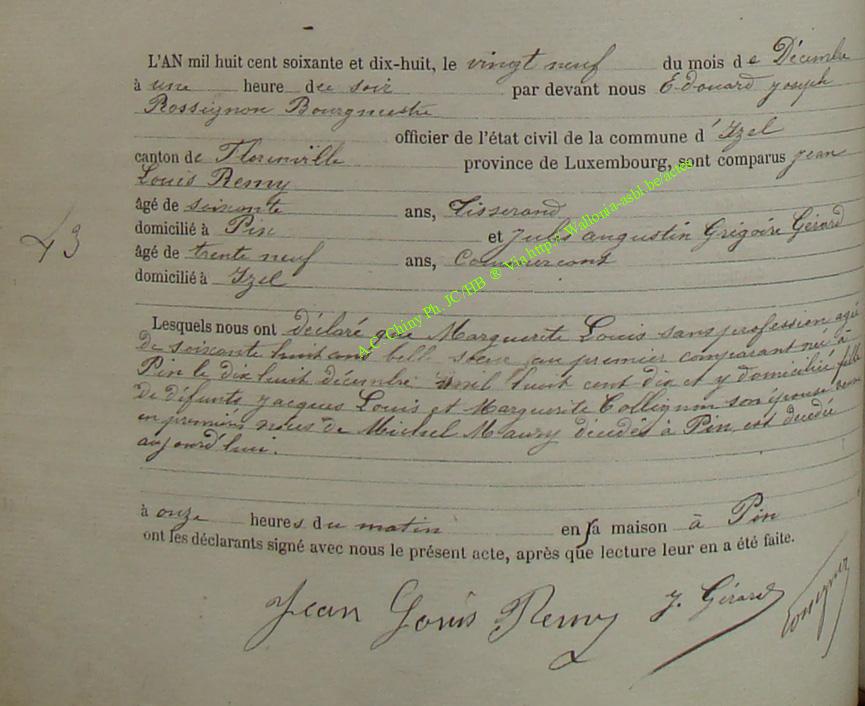 L'AN mil huit cent soixante et dix-huit, le vingt neuf du mois de Décembre
à une heure de soir par devant nous Edouard Joseph
Rossignon Bourgmestre
officier de l'état civil de la commune d'Izel
canton de Florenville province de Luxembourg, sont comparus Jean
Louis Remy
âgé de soixante ans, Tisserand
domicilié à Pin et Jules Augustin Grégoire Gérard
43
âgé de trente neuf ans, Commercant
domicilié à Izel
Lesquels nous ont déclaré que Marguerite Louis sans profession agée
de soixante huit ans belle soeur au premier comparant née à
Pin le dix huit décembre mil huit cent dix et y domiciliée fille
de défunts Jacques Louis et Marguerite Collignon son épouse veuve
en premières noces de Michel Maury décédé à Pin, est décédée
aujourd'hui.
à onze heures du matin en sa maison à Pin
ont les déclarants signé avec nous le présent acte, après que lecture leur en a été faite.
Jean Louis Remy J. Gérard
A.C. Chiny Ph. JC/HB ® Via http://Wallonia-asbl.be/actes